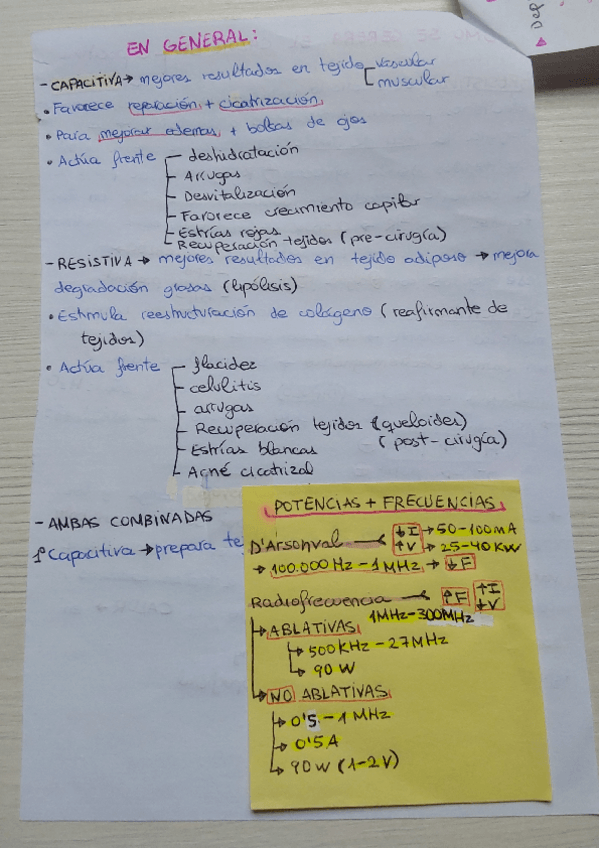 EN GENERAL:
- CAPACITIVA → mejores resultados en tejido vascular
muscular
• Favorece reparación + cicatrización
• Para mejorar edemas + bolsas de ojos
• Actúa frente deshidratación
Arrugas
Desvitalización
Favorece crecimiento capilar
Estrías rojas
Recuperación tejidos (pre-cirugía)
- RESISTIVA → mejores resultados en tejido adiposo → mejora
degradación grasas (lipólisis)
• Estimula reestructuración de colágeno (reafirmante de
tejidos)
• Actúa frente flacidez
celulitis
arrugas
Recuperación tejidos (queloides)
(post-cirugía)
Estrías blancas
Acné cicatrizal
- AMBAS COMBINADAS
1º Capacitiva → prepara te
POTENCIAS + FRECUENCIAS
D'Arsonval ↓I → 50-100mA
↑V → 25-40 KW
→ 100.000 Hz - 1 MHz → ↓F
Radiofrecuencia ↑F ↑I
↓V
1MHz-300MHz
→ ABLATIVAS
→ 500 KHz - 27 MHz
→ 90 W
→ NO ABLATIVAS
→ 0'5 - 1 MHz
→ 0'5 A
→ 90 W (1-2 V)